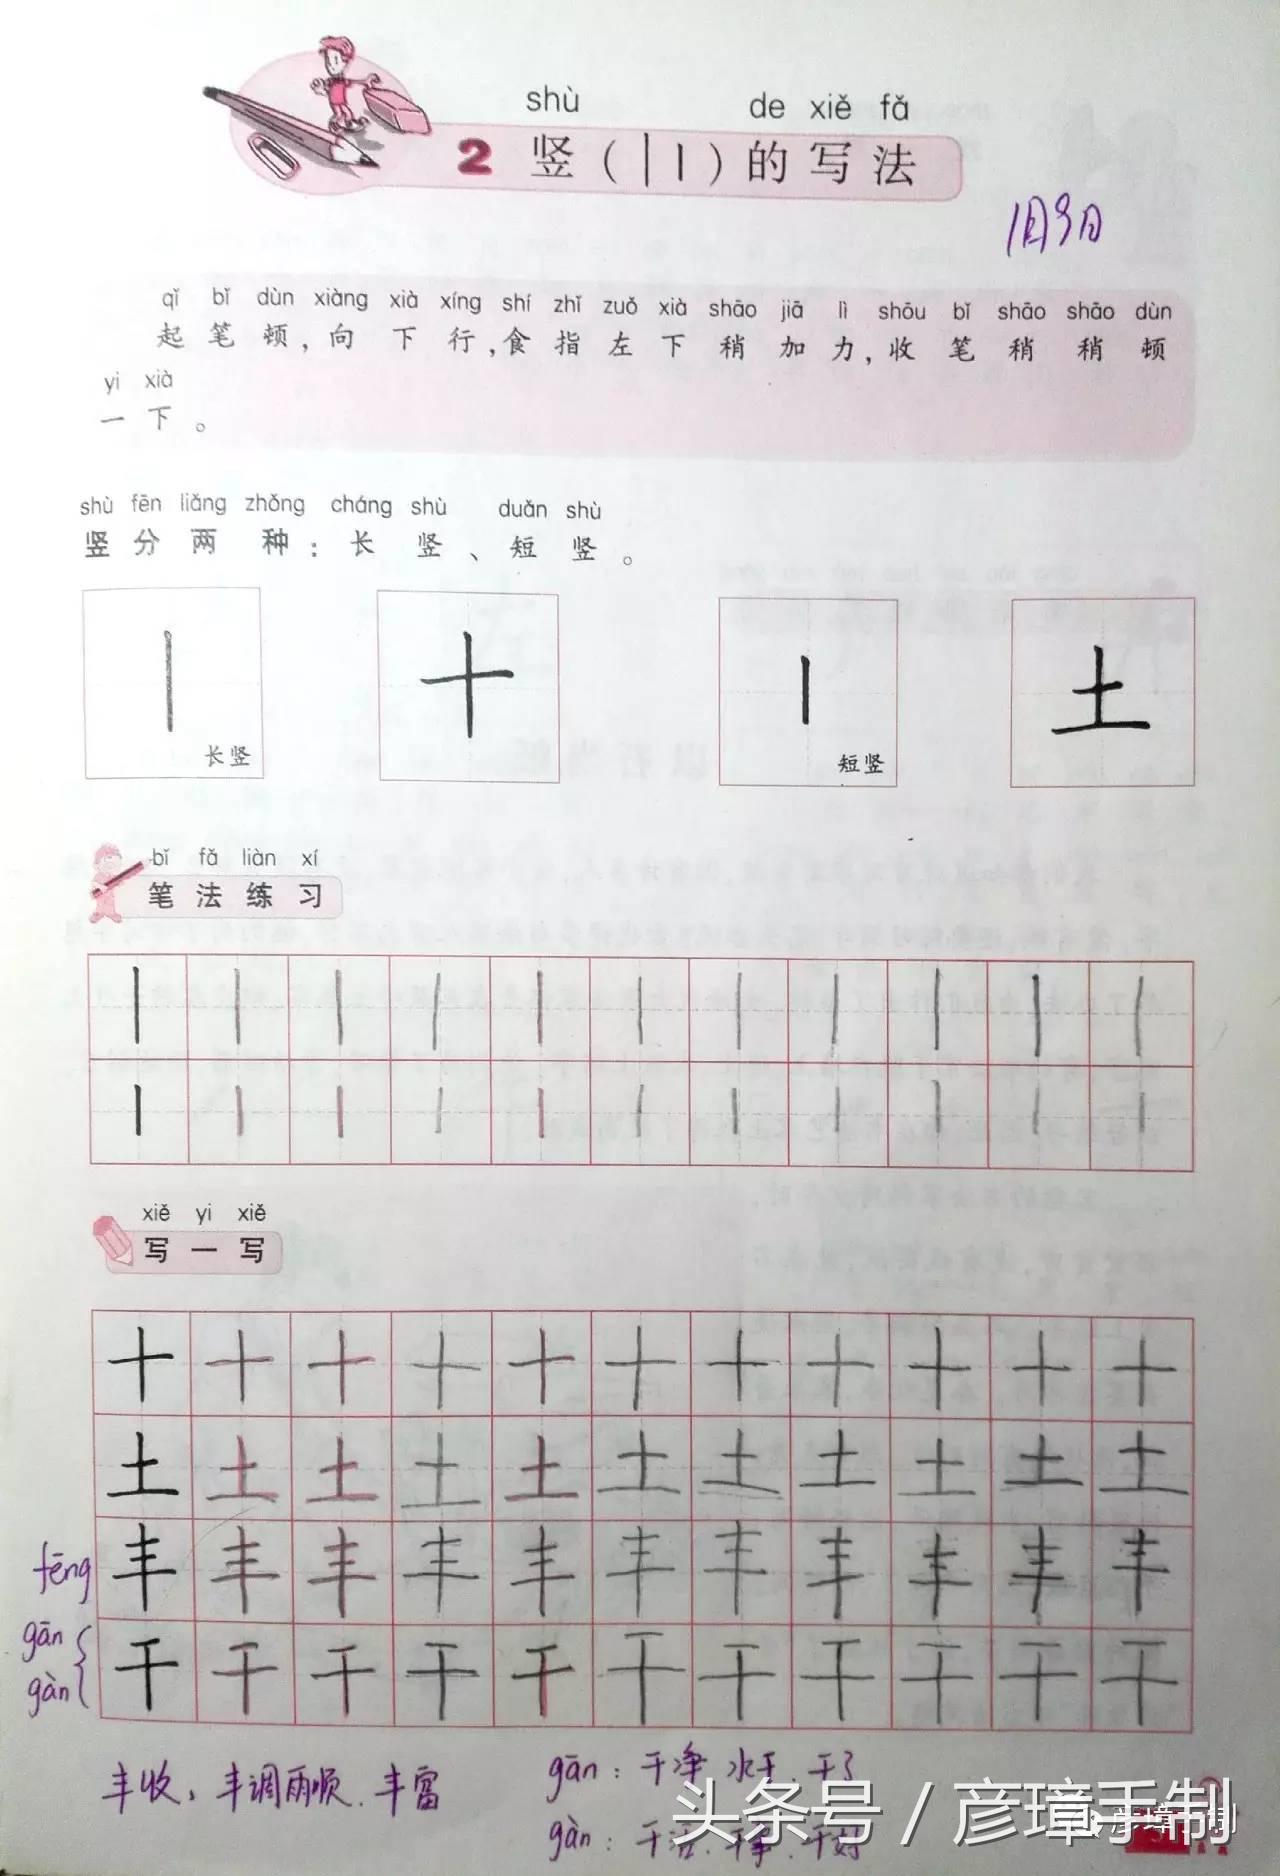 shù de xiě fǎ
2 竖（丨丨）的写法
1月9日
qǐ bǐ dùn xiàng xià xíng shí zhǐ zuǒ xià shāo jiā lì shōu bǐ shāo shāo dùn
起笔顿，向下行，食指左下稍加力，收笔稍稍顿
yi xià
一下。
shù fēn liǎng zhǒng cháng shù duǎn shù
竖分两种：长竖、短竖。
丨 十 丨 土
长竖 短竖
bǐ fǎ liàn xí
笔法练习
丨 丨 丨 丨 丨 丨 丨 丨 丨 丨 丨
丨 丨 丨 丨 丨 丨 丨 丨 丨 丨 丨
xiě yi xiě
写一写
十 十 十 十 十 十 十 十 十 十 十
土 土 土 土 土 土 土 土 土 土 土
fēng 丰 丰 丰 丰 丰 丰 丰 丰 丰 丰 丰
gān
gàn 干 干 干 干 干 干 干 干 干 干 干
丰收、丰调雨顺、丰富
gān：干净、水干、干了
gàn：干活、干事、干好
头条号／彦璋手制